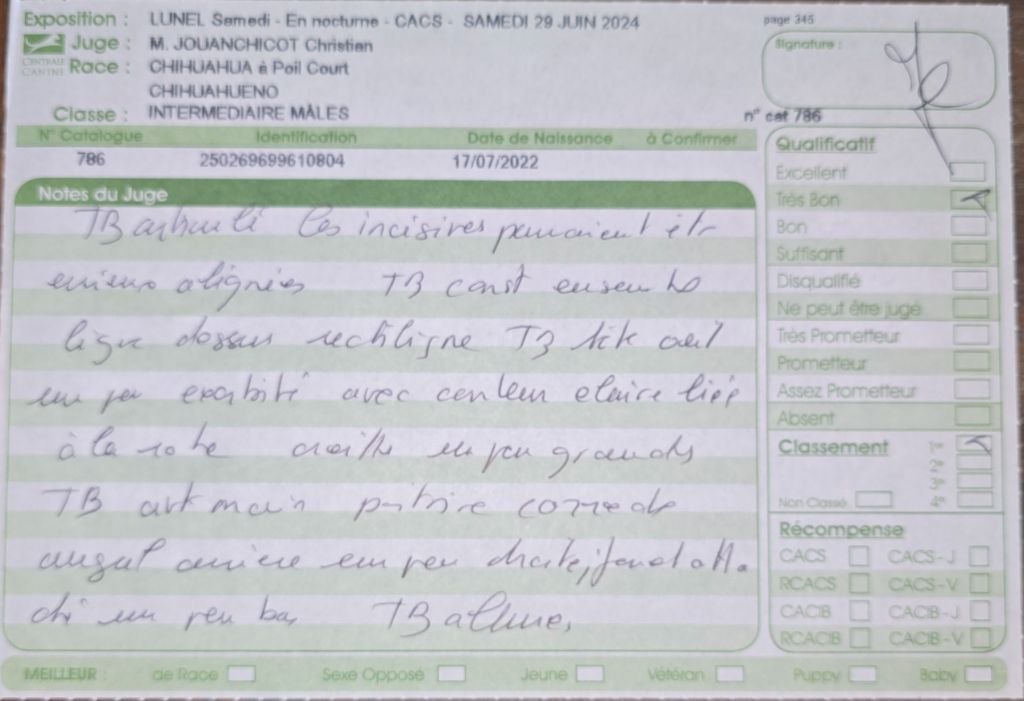 Exposition : LUNEL Samedi - En nocturne - CACS - SAMEDI 29 JUIN 2024
page 345
Juge : M. JOUANCHICOT Christian
Signature :
CENTRALE CANINE
Race : CHIHUAHUA à Poil Court
CHIHUAHUENO
Classe : INTERMEDIAIRE MÂLES
n° cat 786
N° Catalogue Identification Date de Naissance à Confirmer
786 250269699610804 17/07/2022
Notes du Juge
TB les incisives pourraient êtr
mieux alignées TB const ensemble
ligne dessus rectiligne TB tête oeil
un peu exorbité avec couleur claire liée
à la robe oreille un peu grande
TB avt main poitrine correcte
angul arrière un peu droite, fouet atta
ché un peu bas TB allures
Qualificatif
Excellent
Très Bon
Bon
Suffisant
Disqualifié
Ne peut être jugé
Très Prometteur
Prometteur
Assez Prometteur
Absent
Classement 1er
2e
3e
Non Classé 4e
Récompense
CACS CACS-J
RCACS CACS-V
CACIB CACIB-J
RCACIB CACIB-V
MEILLEUR : de Race Sexe Opposé Jeune Vétéran Puppy Baby